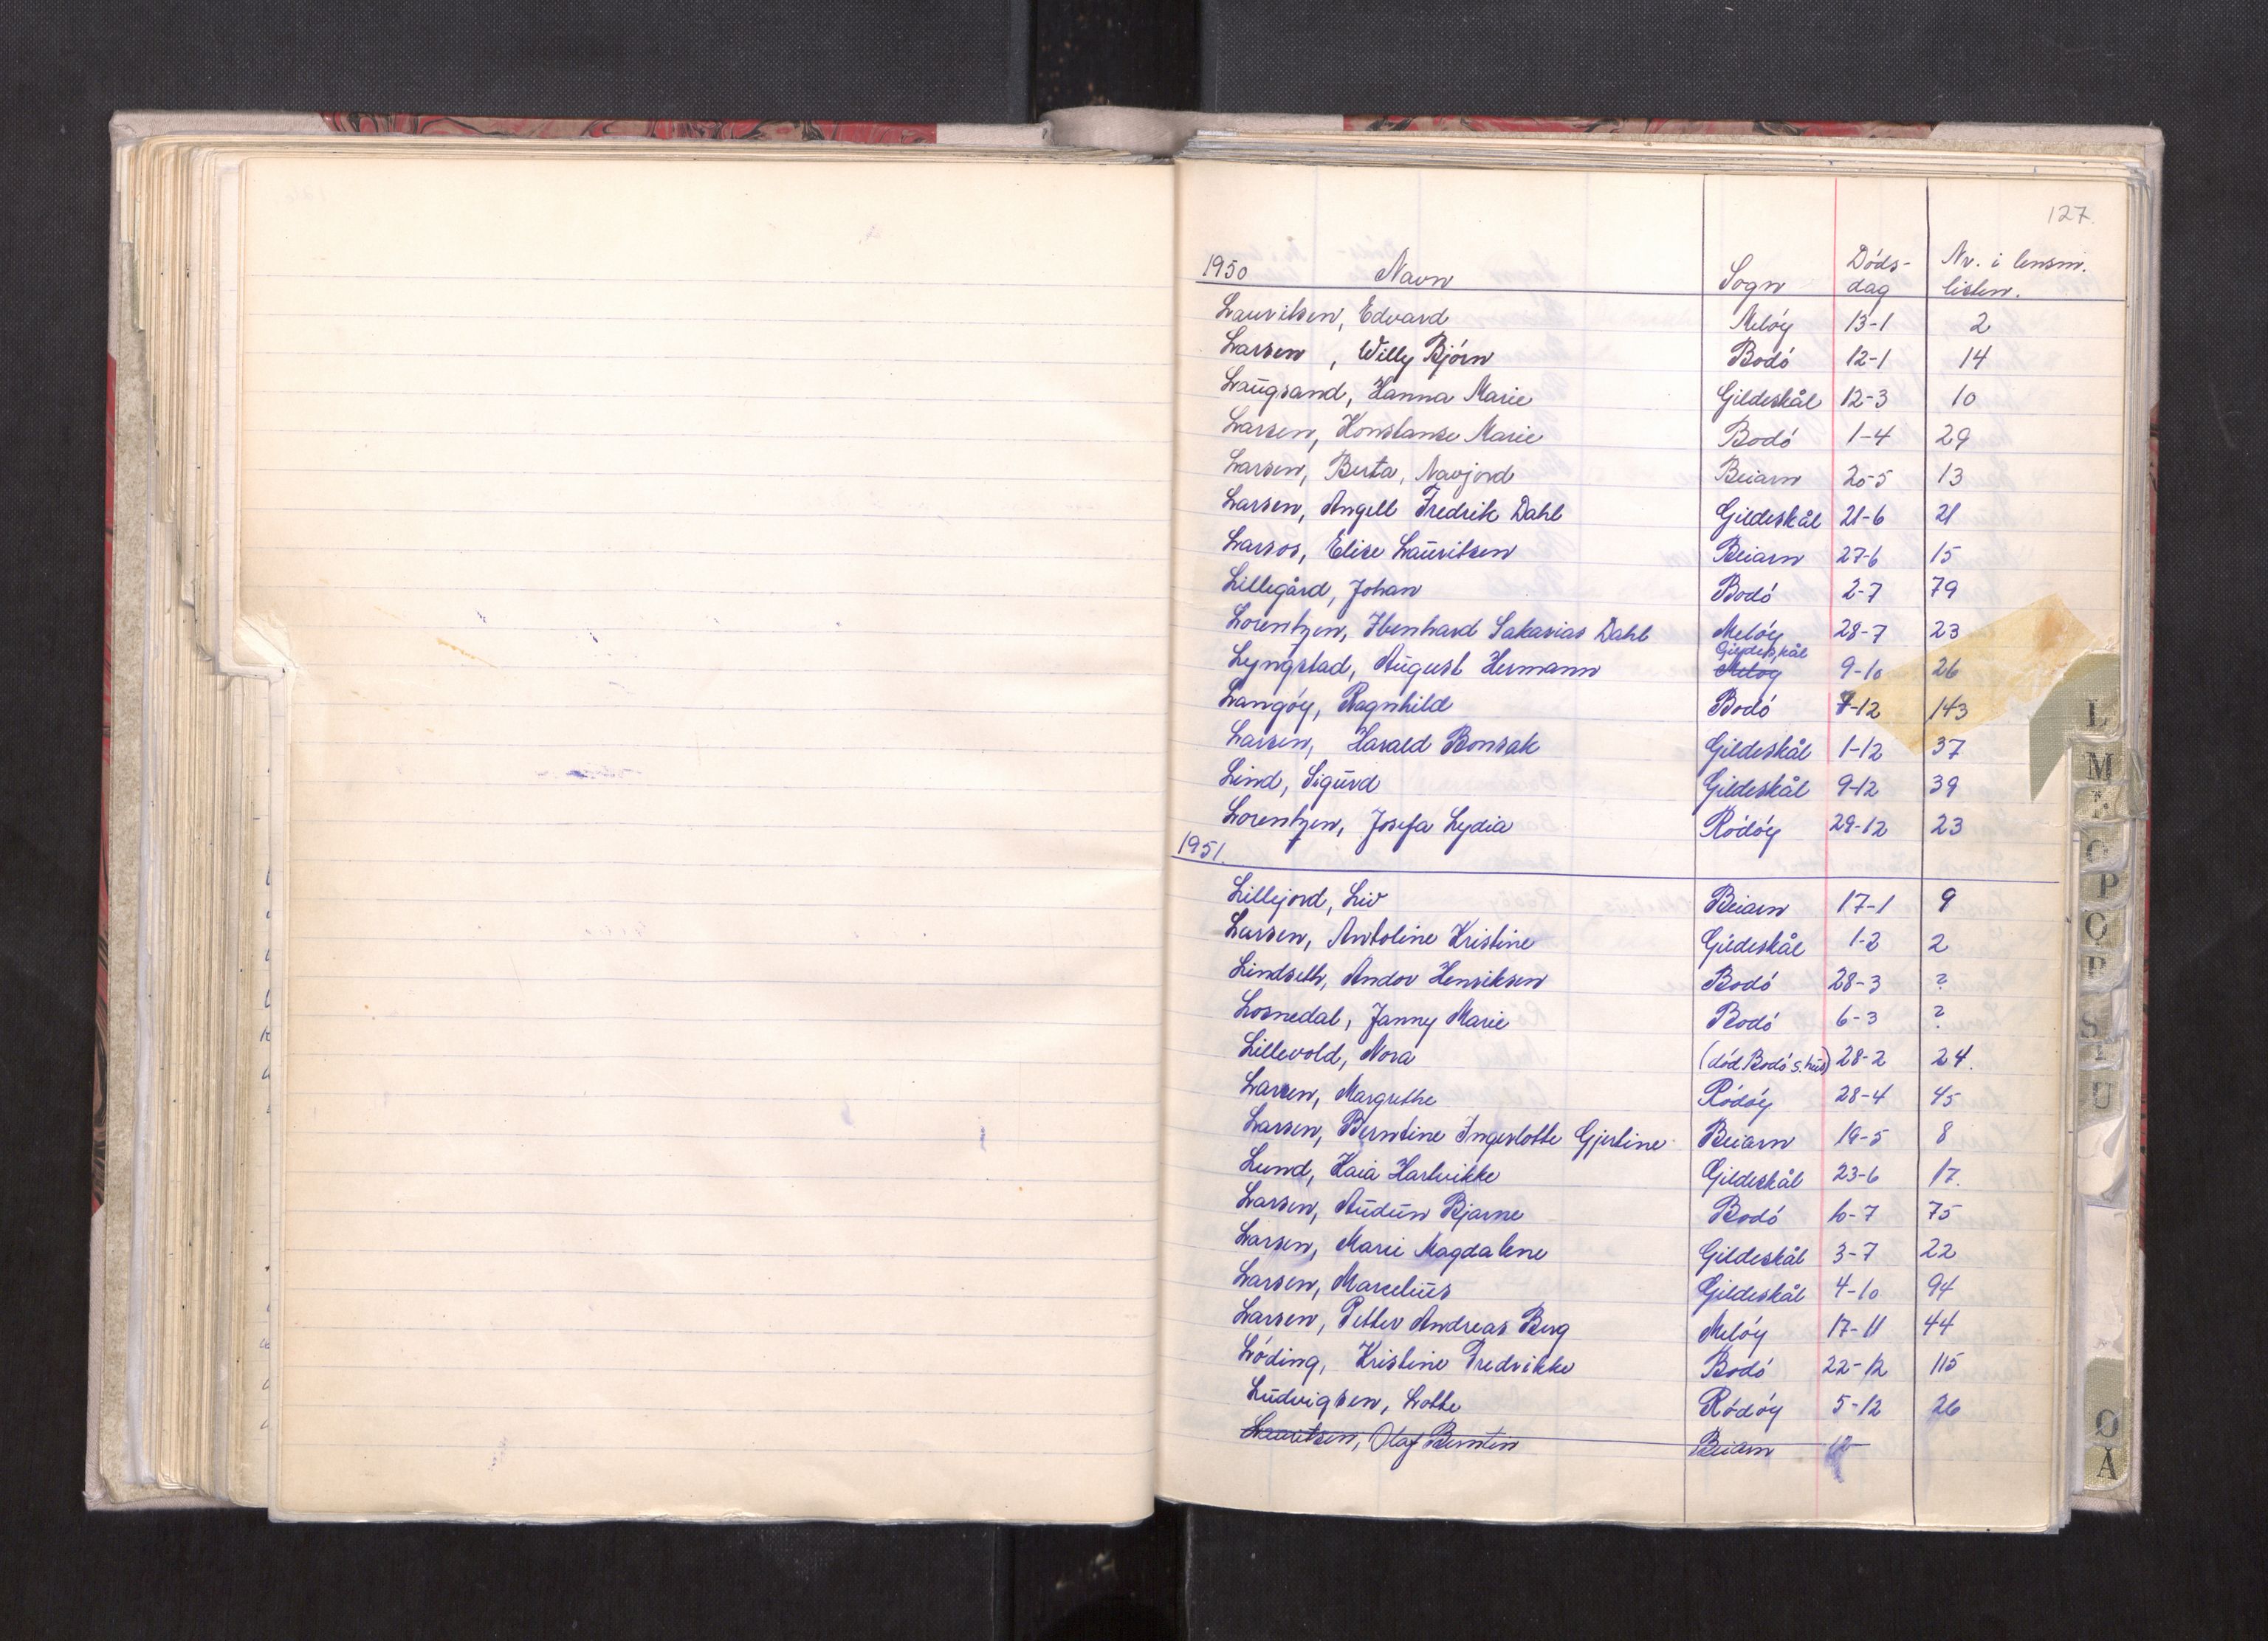 127.
1950 Navn Sogn Döds-dag Nr. i lensm. listen.
Lauritsen, Edvard Melöy 13-1 2
Larsen, Willy Björn Bodö 12-1 14
Laugsand, Hanna Marie Gildeskål 12-3 10
Larsen, Konstanse Marie Bodö 1-4 29
Larsen, Berta, Navjord Beiarn 20-5 13
Larsen, Angell Fredrik Dahl Gildeskål 21-6 21
Larsos, Elise Lauritsen Beiarn 27-6 15
Lillegård, Johan Bodö 2-7 79
Lorentzen, Ibenhard Sakarias Dahl Melöy 28-7 23
Lyngstad, August Hermann Gildeskål Melöy 9-10 26
Langöy, Ragnhild Bodö 7-12 143
Larsen, Harald Bonsak Gildeskål 1-12 37
Lind, Sigurd Gildeskål 9-12 39
Lorentzen, Josefa Lydia Rödöy 29-12 23
1951.
Lillejord, Liv Beiarn 17-1 9
Larsen, Antoline Kristine Gildeskål 1-2 2
Lindseth, Andor Henriksen Bodö 28-3 ?
Losnedal, Janny Marie Bodö 6-3 ?
Lillevold, Nora (död Bodö s.hus) 28-2 24.
Larsen, Margrethe Rödöy 28-4 45
Larsen, Berntine Ingerlotte Gjertine Beiarn 19-5 8
Lund, Kaia Hartvikke Gildeskål 23-6 17.
Larsen, Audun Bjarne Bodö 10-7 75
Larsen, Marie Magdalene Gildeskål 3-7 22
Larsen, Marcelius Gildeskål 4-10 94
Larsen, Petter Andreas Berg Melöy 17-11 44
Löding, Kristine Fredrikke Bodö 22-12 115
Ludvigsen, Lotte Rödöy 5-12 26
Lauritsen, Olaf Berntin Beiarn
L
M
O
P
Q
R
S
U
Ø
A